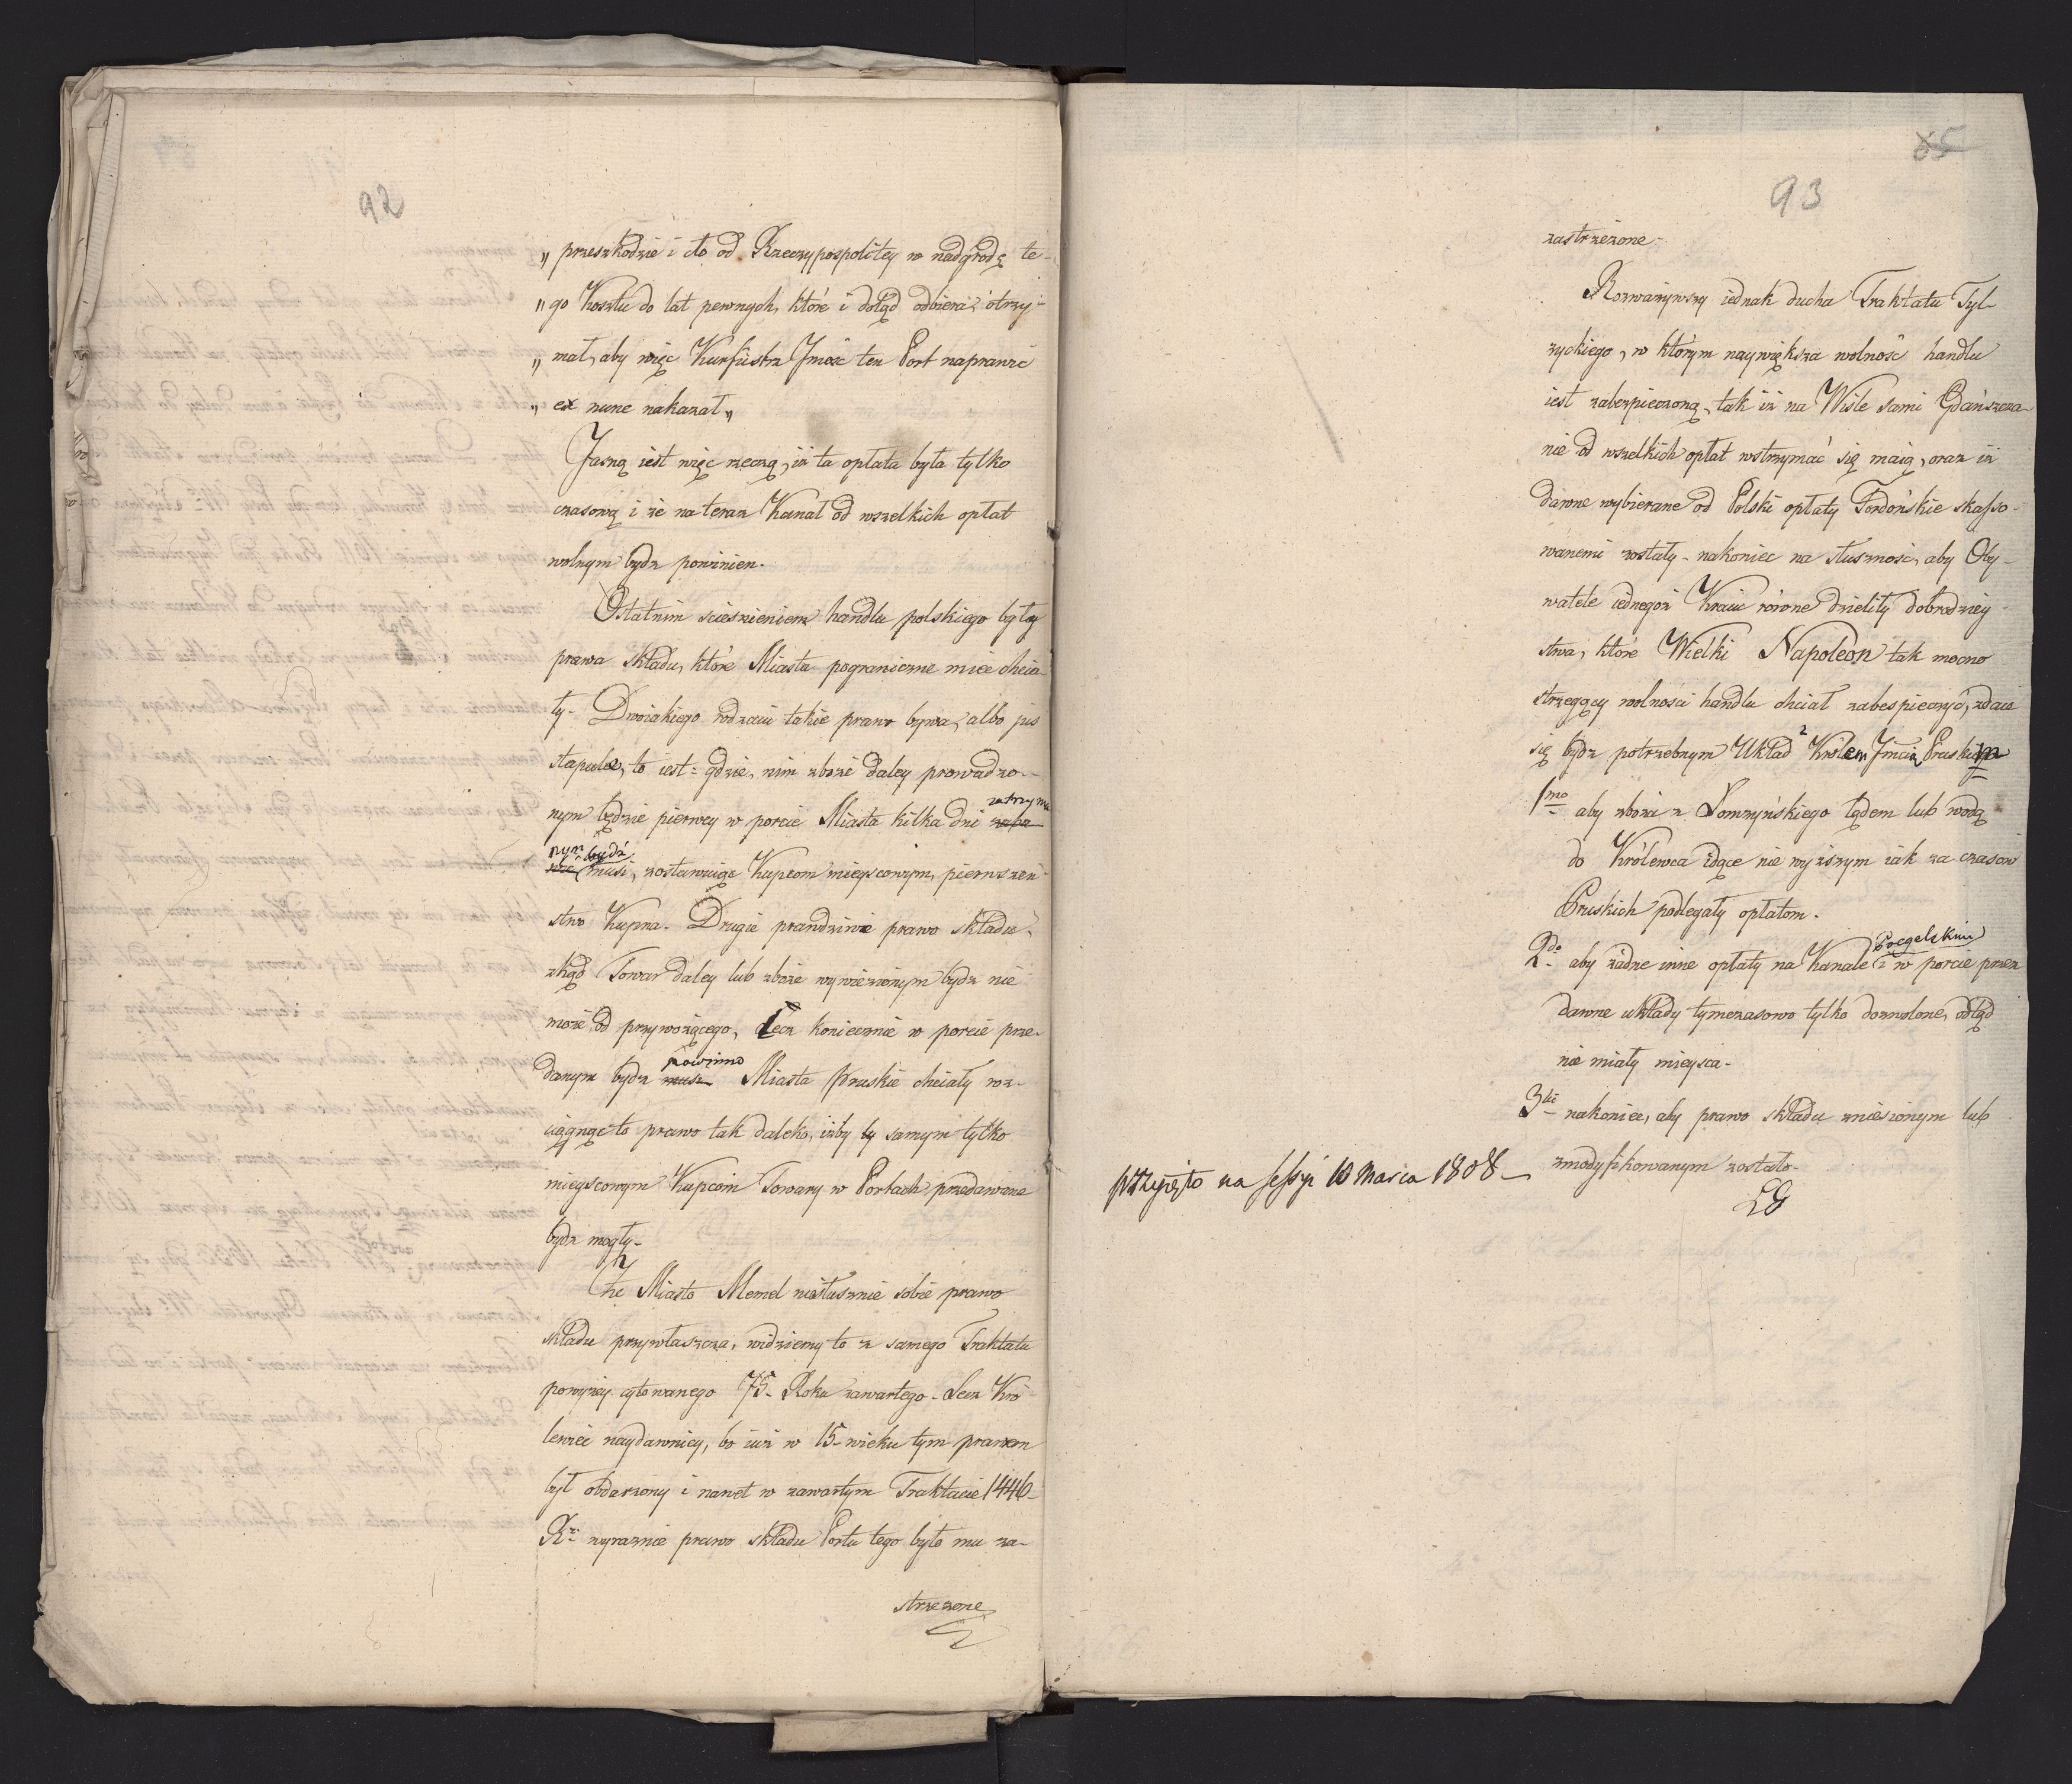 92
„ przeszkodzie i cło od Rzeczypospolitey w nadgrodę te-
„ go Kosztu do lat pewnych, które i dotąd odbiera, otrzy-
„ mał, aby więc Kurfirstrz Jmość ten Port naprawić
„ ex nunc nakazał„
Jasną iest więc rzeczą, iż ta opłata była tylko
czasową i że na teraz Kanał od wszelkich opłat
wolnym bydz powinien.
Ostatnim ścieśnieniem handlu polskiego były
prawa składu, które Miasta pograniczne mieć chcia-
ły. Dwoiakiego rodzaiu takie prawo bywa, albo jus
stapulae, to iest: gdzie, nim zboże daley prowadzo-
nym będzie pierwey w porcie Miasta kilka dni zatrzyma
nym bydź musi, zostawuiąc Kupcom mieyscowym pierwszeń-
stwo Kupna. Drugie prawdziwie prawo składu,
zkąd Towar daley lub zboże wywiezionym bydz nie
może od przywożącego, Lecz koniecznie w porcie prze-
danym bydz powinno Miasta Pruskie chciały roz-
ciągnąć to prawo tak daleko, iżby ty samym tylko
mieyscowym Kupcom Towary w Portach przedawane
bydz mogły.
Że Miasto Memel niesłusznie sobie prawo
składu przywłaszcza, widziemy to z samego Traktatu
powyżey cytowanego 75. Roku zawartego. Lecz Kró-
lewiec naydawniey, bo iuż w 15. wieku tym prawem
był obdarzony i nawet w zawartym Traktacie 1446.
Rzu wyraznie prawo składu Portu tego było mu za-
strzeżone
85
93
zastrzeżone.
Rozważywszy iednak ducha Traktatu Tyl-
zyckiego, w którym naywiększa wolność handlu
iest zabezpieczoną, tak iż na Wiśle sami Gdańszcza-
nie od wszelkich opłat wstrzymać się maią, oraz iż
dawne wybierane od Polski opłaty Fordońskie skasso-
wanemi zostały. nakoniec na słuszność, aby Oby-
watele iednegoż Kraiu równe dzielily dobrodziey-
stwa, które Wielki Napoleon tak mocno
strzegący wolności handlu chciał zabespieczyć, zdaie
się bydz potrzebnym Układ z Królem Jmcią Pruskim
1mo aby zboża z Łomżyńskiego lądem lub wodą
do Królewca idące nie wyższym iak za czasow
Pruskich podlegały opłatom.
2do aby żadne inne opłaty na Kanale Pregelskim i w porcie przez
dawne układy tymczasowo tylko dozwolone, odtąd
nie miały mieysca.
3tie nakoniec, aby prawo składu zniesionym lub
zmodyfikowanym zostało.
przyięto na Sessyi 10 Marca 1808 —
LG